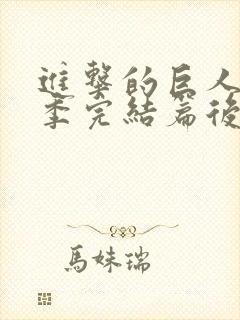 進擊的巨人
季完結篇後
馬妹瑞